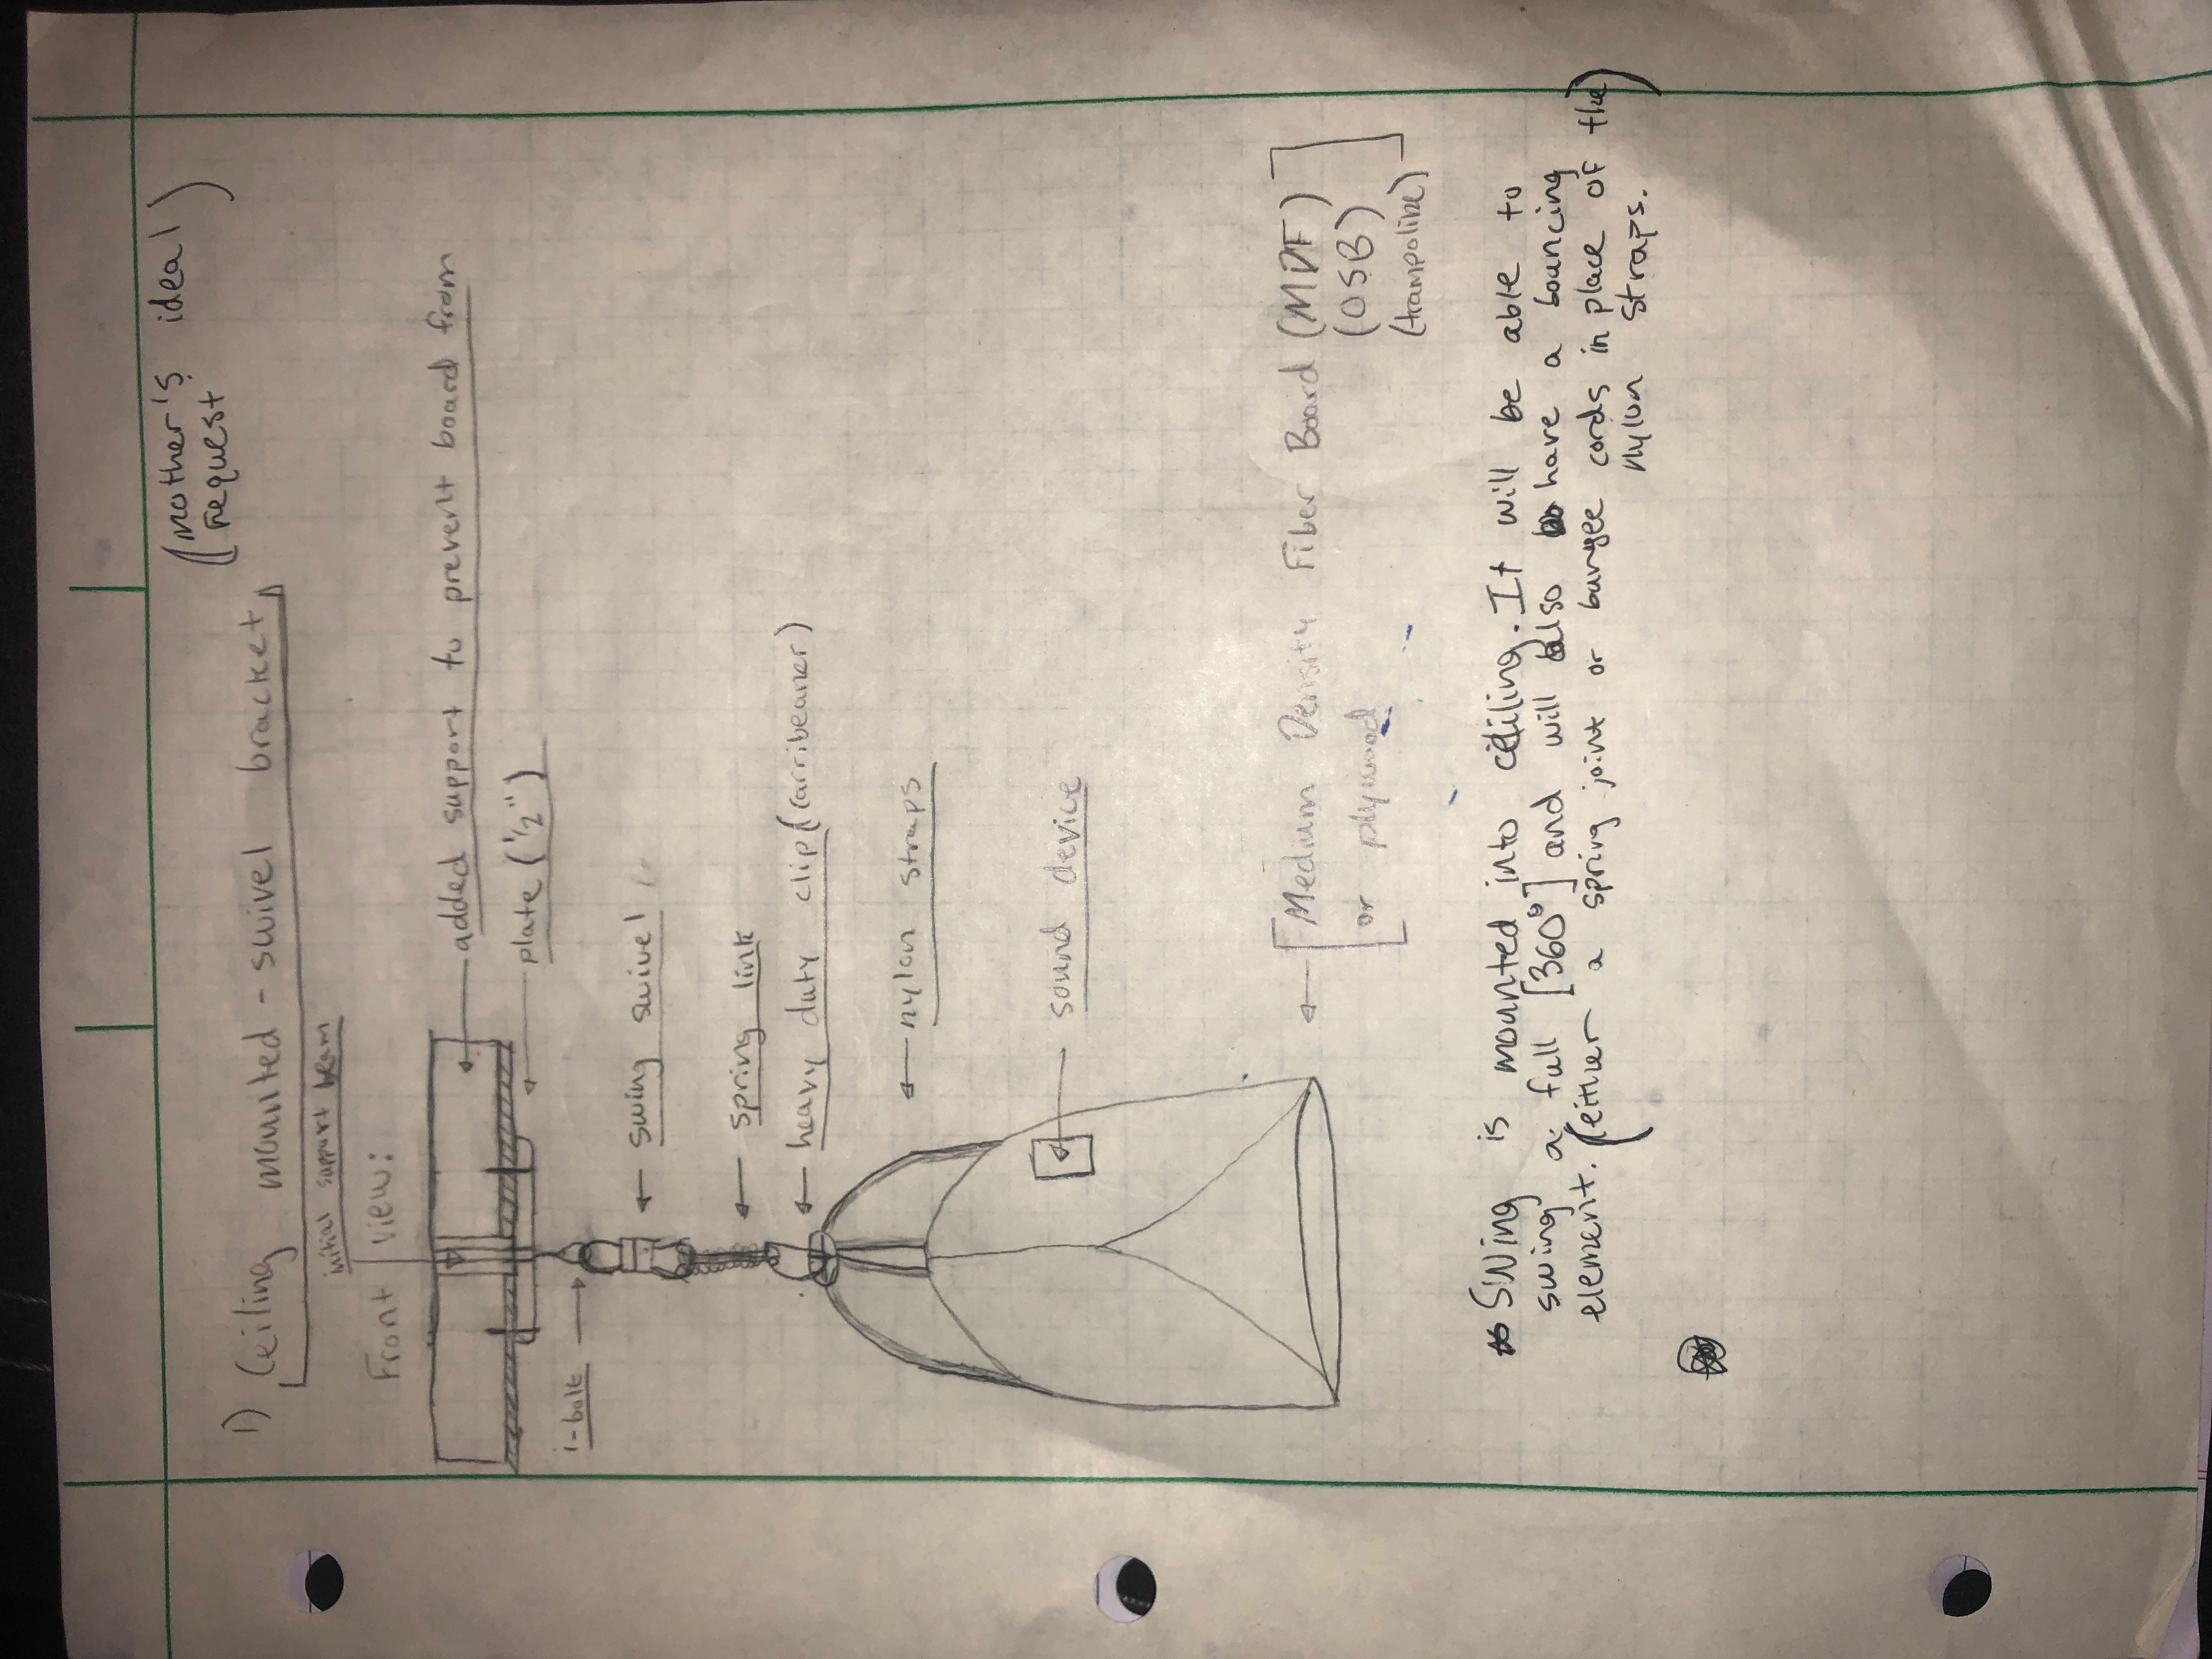 (Mother's ideal
request)
1) Ceiling mounted - swivel bracket
initial support beam
Front view:
added support to prevent board from
plate (1/2")
i-bolt
swing swivel
spring link
heavy duty clip (carribeaner)
nylon straps
sound device
[Medium Density Fiber Board (MDF)
or plywood (OSB)
(trampoline)]
* Swing is mounted into ceiling. It will be able to
swing a full [360°] and will also have a bouncing
element. (either a spring joint or bungee cords in place of the
nylon straps.)